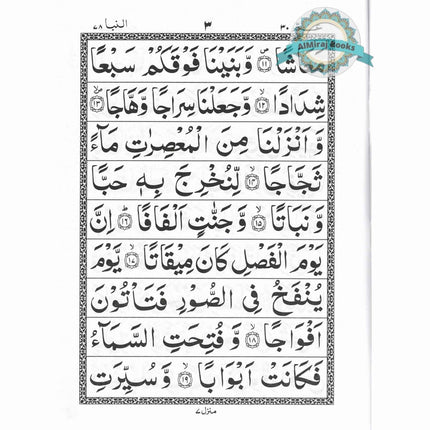 النبا ٧٨ ٣ ٣٠
AlMiraj Books
مَعَاشًا ۝١١ وَّبَنَيْنَا فَوْقَكُمْ سَبْعًا
شِدَادًا ۝١٢ وَّجَعَلْنَا سِرَاجًا وَّهَّاجًا ۝١٣
وَّاَنْزَلْنَا مِنَ الْمُعْصِرٰتِ مَآءً
ثَجَّاجًا ۝١٤ لِّنُخْرِجَ بِهٖ حَبًّا
وَّنَبَاتًا ۝١٥ وَّجَنّٰتٍ اَلْفَافًا ۝١٦ اِنَّ
يَوْمَ الْفَصْلِ كَانَ مِيْقَاتًا ۝١٧ يَّوْمَ
يُنْفَخُ فِى الصُّوْرِ فَتَاْتُوْنَ
اَفْوَاجًا ۝١٨ وَّفُتِحَتِ السَّمَآءُ
فَكَانَتْ اَبْوَابًا ۝١٩ وَّسُيِّرَتِ
منزل ٧